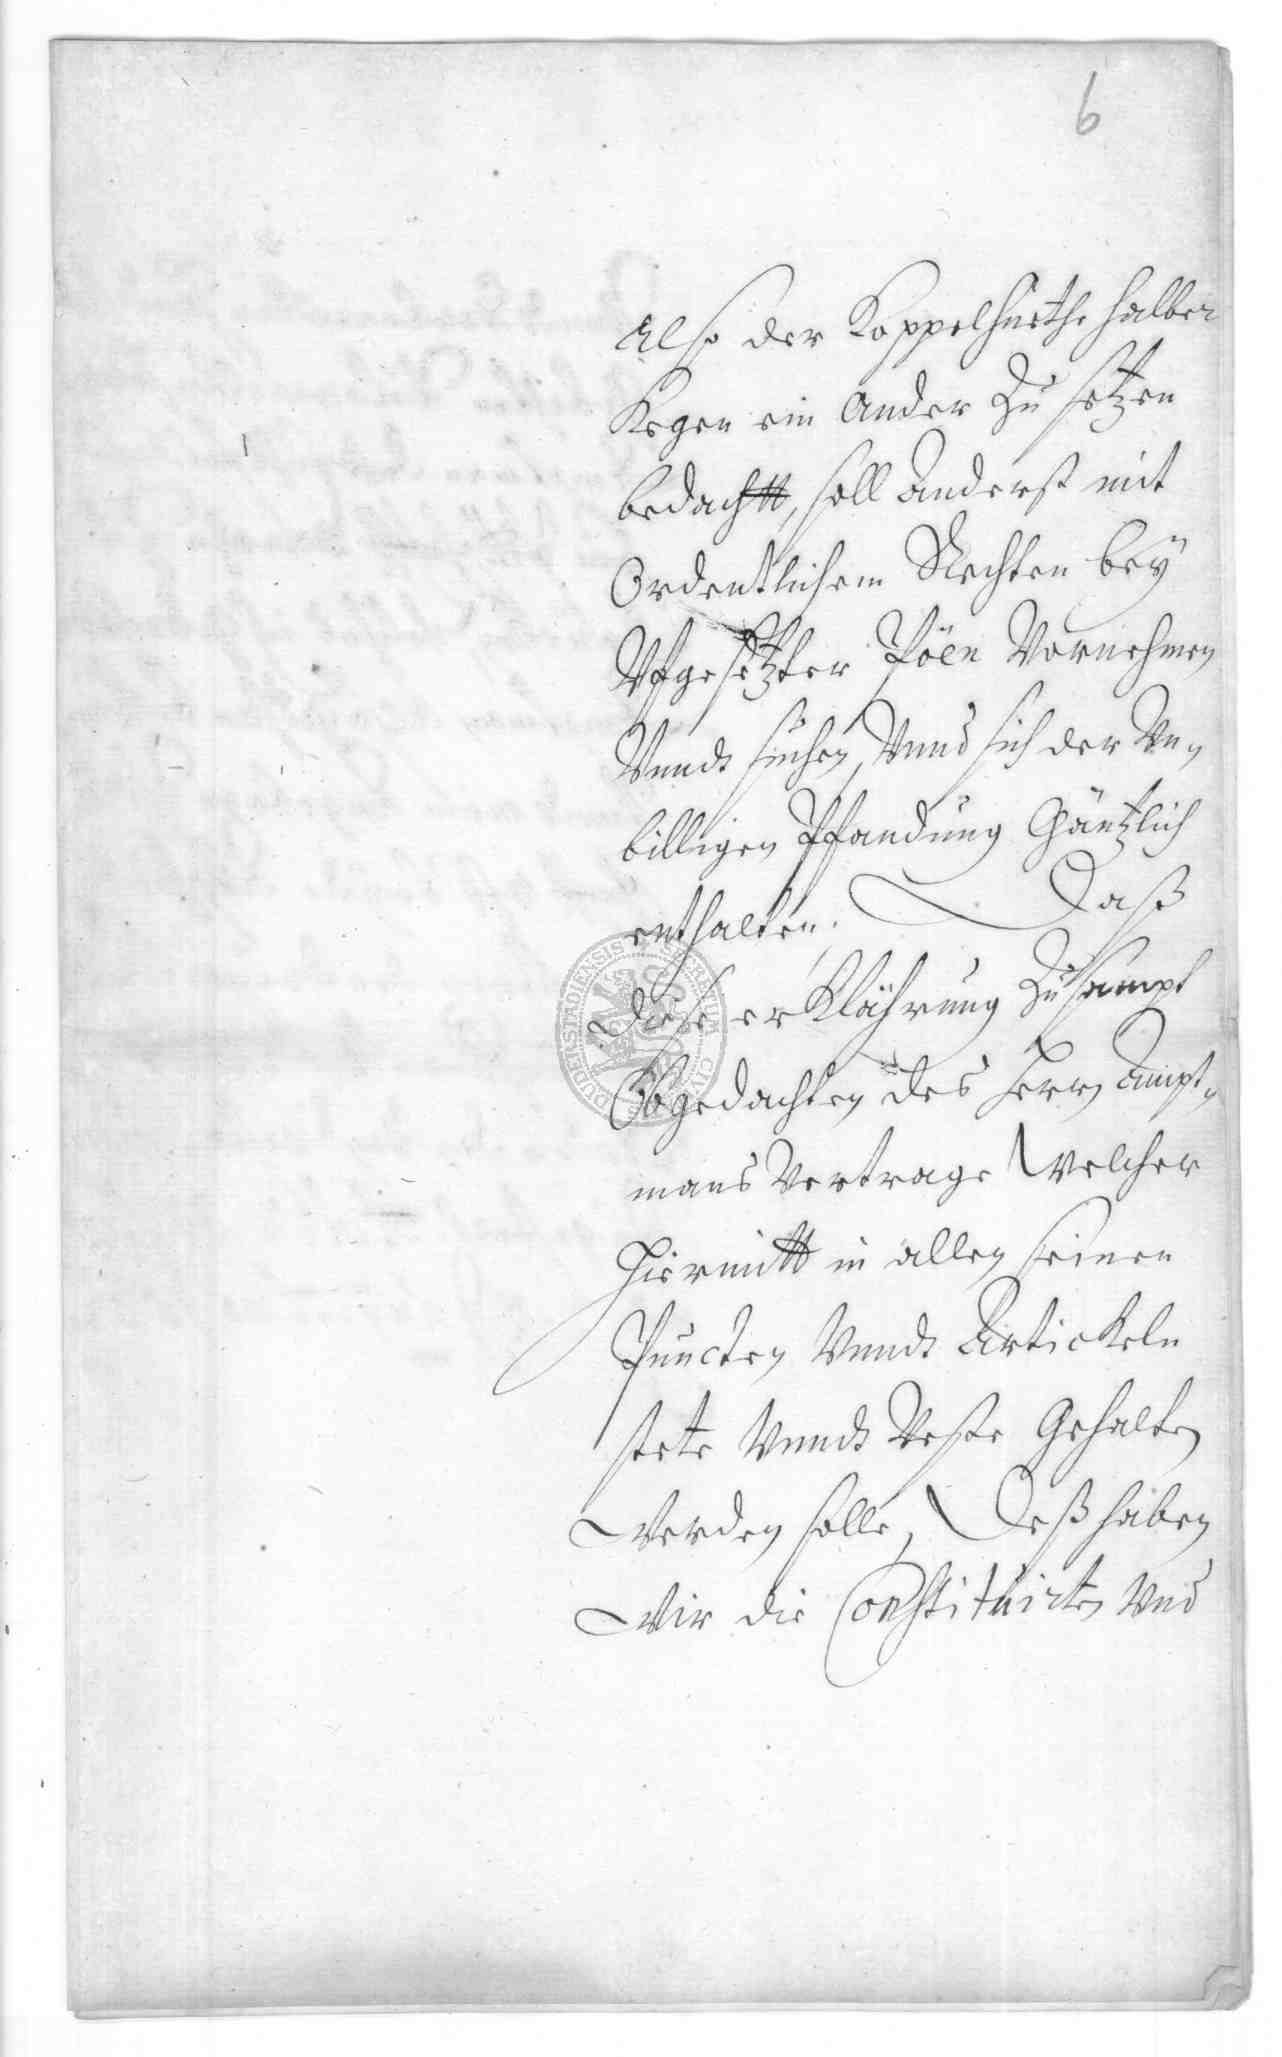 6
Also der Koppelhuethe halber
Kegen ein Ander Zu setzen
bedachtt, soll Anderst nit
Ordentlichem Rechten bey
Vfgesetzter Pöen Vornehmen
Vnndt suchen, Vnnd sich der Vn,
billigen Pfandung Gäntzlich
enthalten. Daß
Diese erKlährung Zu sampt
Obgedachten des Herrn Ampt,
mans Vertrage Welcher
Hiermitt in allen seinen
Puncten Vnndt Artickeln
stete Vnndt Veste Gehalten
Werden solle, Deß haben
Wir die Constituirten Vnd
SECRETUM CIVI DUDERSTADIENSIS